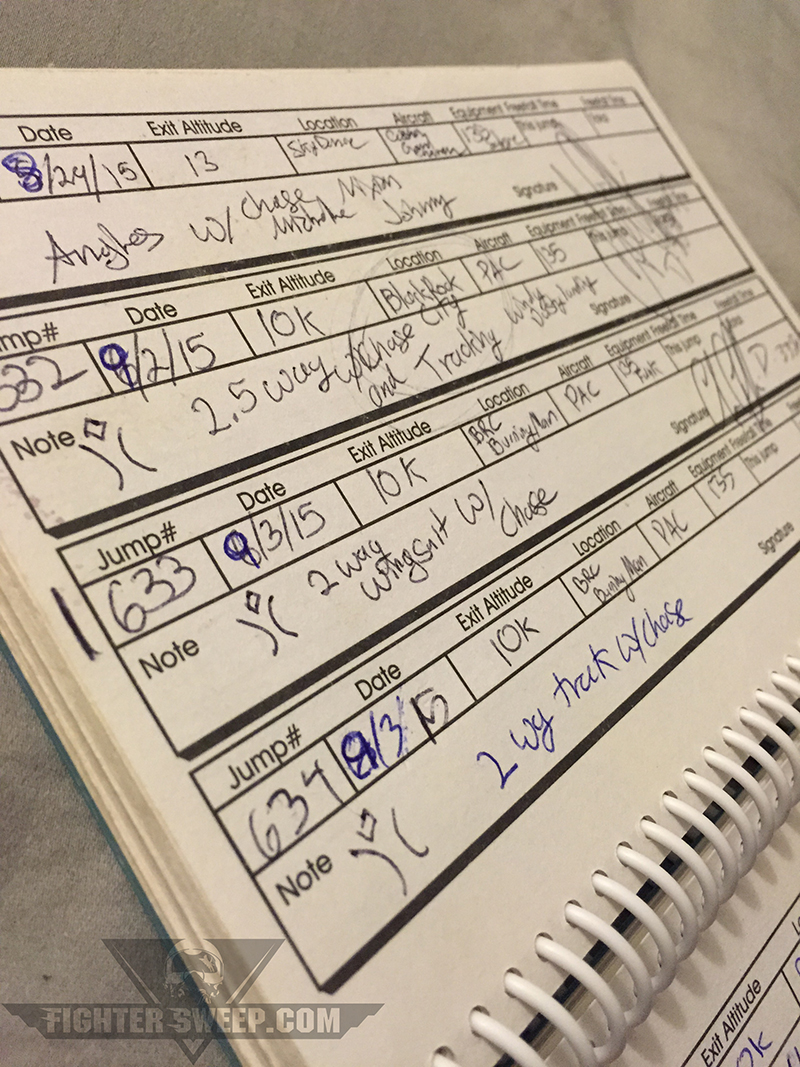 Date Exit Altitude Location Aircraft Equipment Freefall Time Freefall Time
8/24/15 13 This Jump Total
Angles w/ Chase, Nixon
Michelle Johnny
Signature
Jump# Date Exit Altitude Location Aircraft Equipment Freefall Time Freefall Time
632 9/2/15 10K BlackRock PAC 135 This jump Total
City
Note 2.5 way w/ Chase
and Tracking
Signature
Jump# Date Exit Altitude Location Aircraft Equipment Freefall Time Freefall Time
633 9/3/15 10K BRC PAC 135 This jump Total
Burning Man
Note 2 way w/
wingsuit Chase
Signature
D
Jump# Date Exit Altitude Location Aircraft Equipment Freefall Time
634 9/3/15 10K BRC PAC 135 This jump
Burning Man
Note 2 wy track w/ Chase
Signature
Exit Altitude
10K
FIGHTER SWEEP.COM